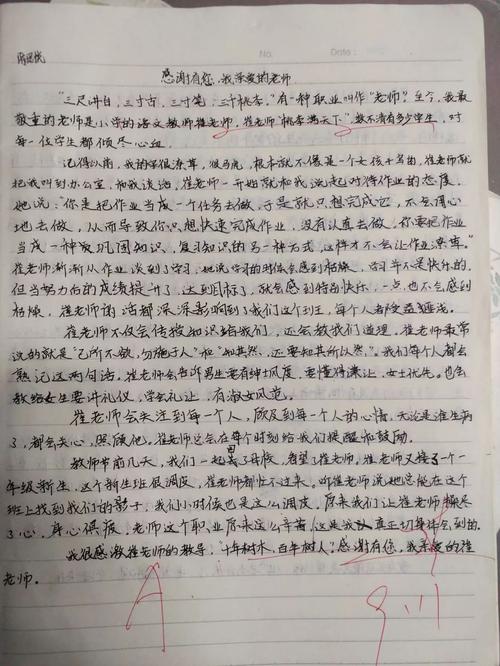 No.
Date
感谢有您，我亲爱的老师
"三尺讲台，三寸舌，三寸笔，三千桃李。"有一种职业叫作"老师"。至今，我最
敬重的老师是小学的语文教师崔老师，崔老师"桃李满天下"，数不清有多少学生，对
每一位学生都倾尽心血。
记得以前，我的字很潦草，很马虎，根本就不像是一个女孩子写的，崔老师就
把我叫到办公室，和我谈话，崔老师一开始就和我说起对待作业的态度，
她说："你是把作业当成一个任务去做，于是就只想完成它，不会用心
地去做，从而导致你只想快速完成作业，没有认真去做，你要把作业
当成一种取巩固知识、复习知识的另一种方式，这样才不会让作业潦草。"
崔老师渐渐从作业谈到了学习，她说学习的时候会感到枯燥，学习并不是快乐的，
但当努力向的成绩提升了，达到目标了，就会感到特别快乐，一点也不会感到
枯燥，崔老师的话都深深影响到了我们这个班，每个人都受益匪浅。
崔老师不仅会传授知识给我们，还会教我们道理，崔老师最常
说的就是"己所不欲，勿施于人"和"知其然，还要知其所以然。"。我们每个人都会
熟记这两句话。崔老师会告诉男生要有绅士风度，要懂得谦让，女士优先。也会
教给女生要讲礼仪，学会礼让，有淑女风范。
崔老师会关注到每一个人，顾及到每一个人的心情，无论是谁生病
了，都会关心，照顾他。崔老师总会在每个时刻给我们提醒和鼓励。
教师节前几天，我们一起回了母校，看望了崔老师，崔老师又接了一个一
年级新生，这个新生班很调皮，崔老师都忙不过来。听崔老师说她总能在这个
班上找到我们的影子，我们小时候也是这么调皮，原来我们让崔老师操尽
了心，身心俱疲，老师这个职业原来这么辛苦，这是我认真三切身体会到的。
我很感激崔老师的教导，"十年树木，百年树人"，感谢有您，我亲爱的崔
老师。
A